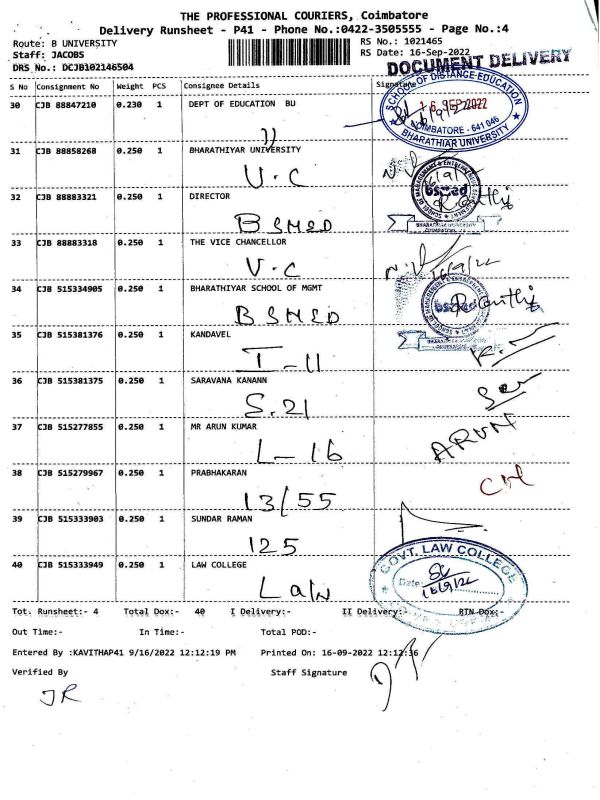 THE PROFESSIONAL COURIERS, Coimbatore
Delivery Runsheet - P41 - Phone No.:0422-3505555 - Page No.:4
Route: B UNIVERSITY RS No.: 1021465
Staff: JACOBS RS Date: 16-Sep-2022
DRS No.: DCJB102146504 DOCUMENT DELIVERY
S No Consignment No Weight PCS Consignee Details Signature
30 CJB 88847210 0.230 1 DEPT OF EDUCATION BU
SCHOOL OF DISTANCE EDUCATION
16 SEP 2022
COIMBATORE - 641 046
BHARATHIAR UNIVERSITY
31 CJB 88858268 0.250 1 BHARATHIYAR UNIVERSITY
V.C
32 CJB 88883321 0.250 1 DIRECTOR
BSMED
bsmed
33 CJB 88883318 0.250 1 THE VICE CHANCELLOR
V.C 16/9/22
34 CJB 515334905 0.250 1 BHARATHIYAR SCHOOL OF MGMT
BSMED
bsmed
35 CJB 515381376 0.250 1 KANDAVEL
I-11
36 CJB 515381375 0.250 1 SARAVANA KANANN
S.21
37 CJB 515277855 0.250 1 MR ARUN KUMAR
L-16 ARUN
38 CJB 515279967 0.250 1 PRABHAKARAN
13/55
39 CJB 515333903 0.250 1 SUNDAR RAMAN
125
40 CJB 515333949 0.250 1 LAW COLLEGE
Law
GOVT. LAW COLLEGE
Date: 16/9/22
Tot. Runsheet:- 4 Total Dox:- 40 I Delivery:- II Delivery:- RTN Dox:-
Out Time:- In Time:- Total POD:-
Entered By :KAVITHAP41 9/16/2022 12:12:19 PM Printed On: 16-09-2022 12:12:36
Verified By Staff Signature
JR